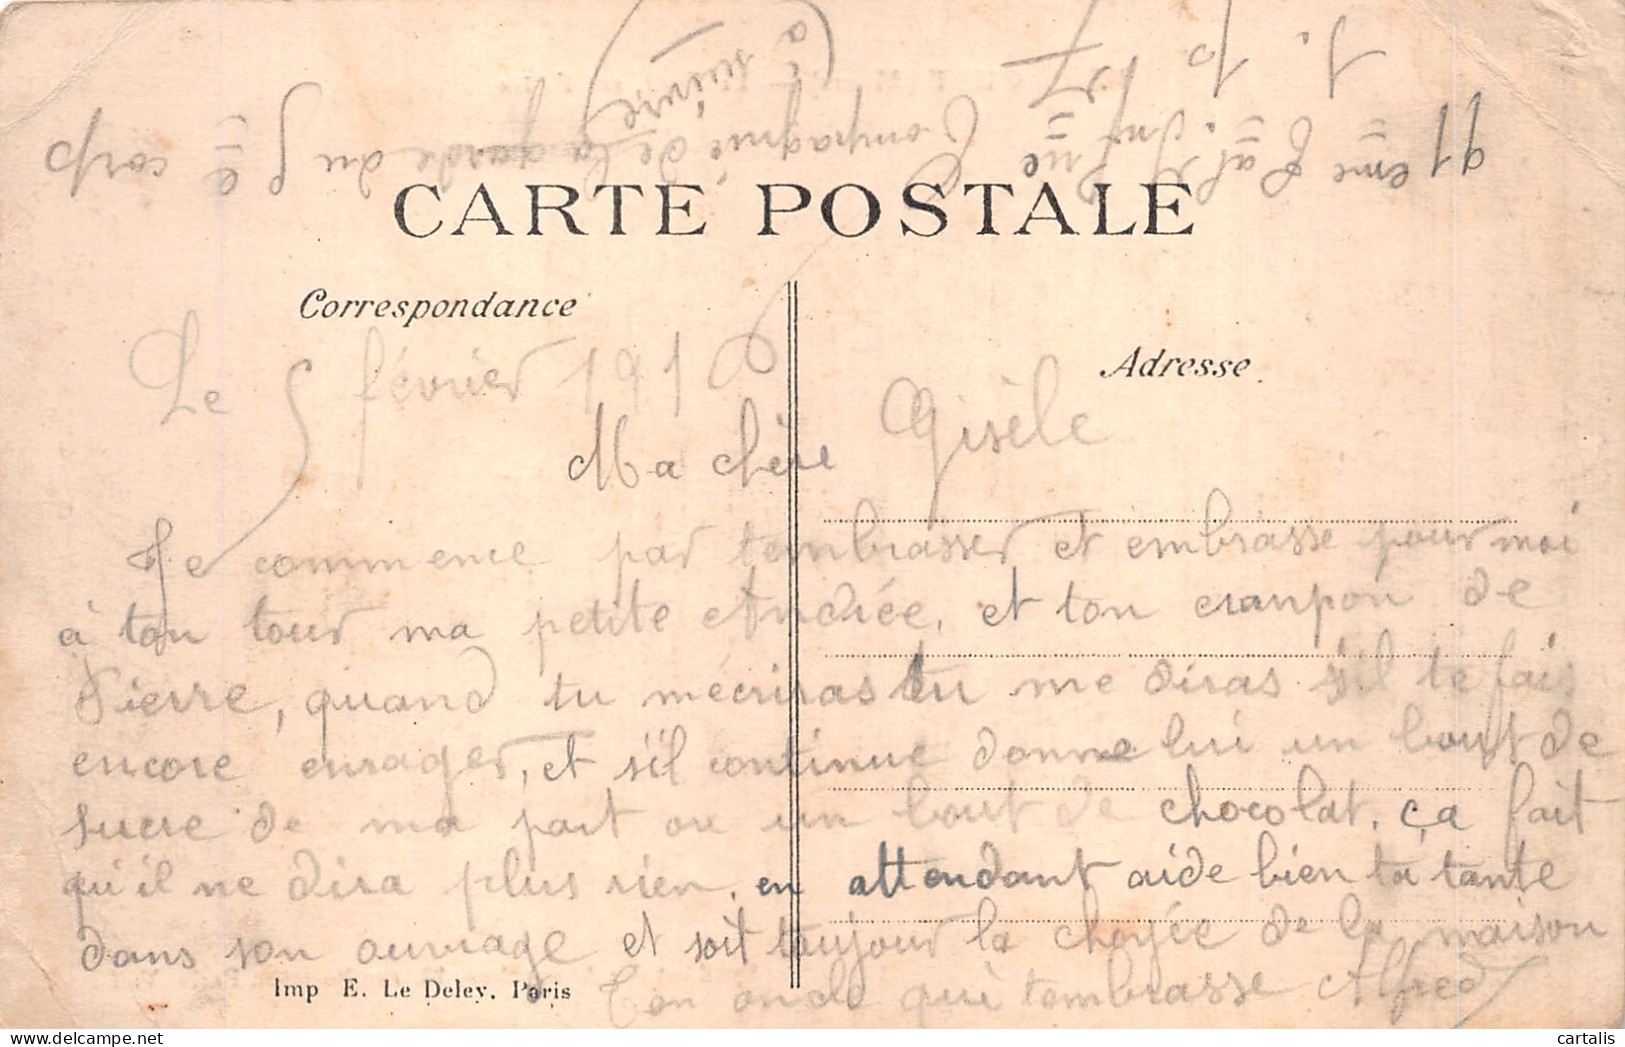 91 eme Bat
Compagnie de la garde du 5 e corp
(à suivre)
CARTE POSTALE
Correspondance
Adresse
Le 5 février 1916
Ma chère Gisèle
Je commence par t'embrasser et embrasse pour moi
à ton tour ma petite Andrée, et ton crampon de
Pierre, quand tu m'écriras tu me diras s'il te fais
encore enrager, et s'il continue donne lui un bout de
sucre de ma part ou un bout de chocolat. ça fait
qu'il ne dira plus rien. en attendant aide bien ta tante
dans son ouvrage et soit toujour la choyée de la maison
Ton oncle qui t'embrasse Alfred
Imp E. Le Deley, Paris
cartalis